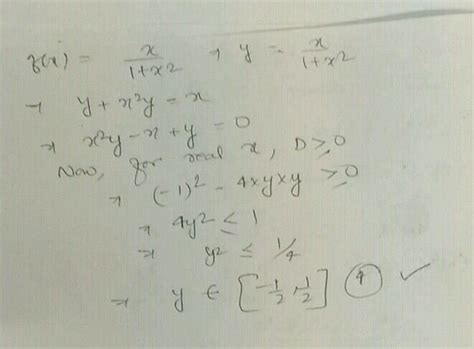 f(x) = x/(1+x2) → y = x/(1+x2)
→ y + x²y = x
→ x²y - x + y = 0
Now, for real x, D ≥ 0
→ (-1)² - 4×y×y ≥ 0
→ 4y2 ≤ 1
→ y2 ≤ 1/4
→ y ∈ [-1/2, 1/2] (4) ✓